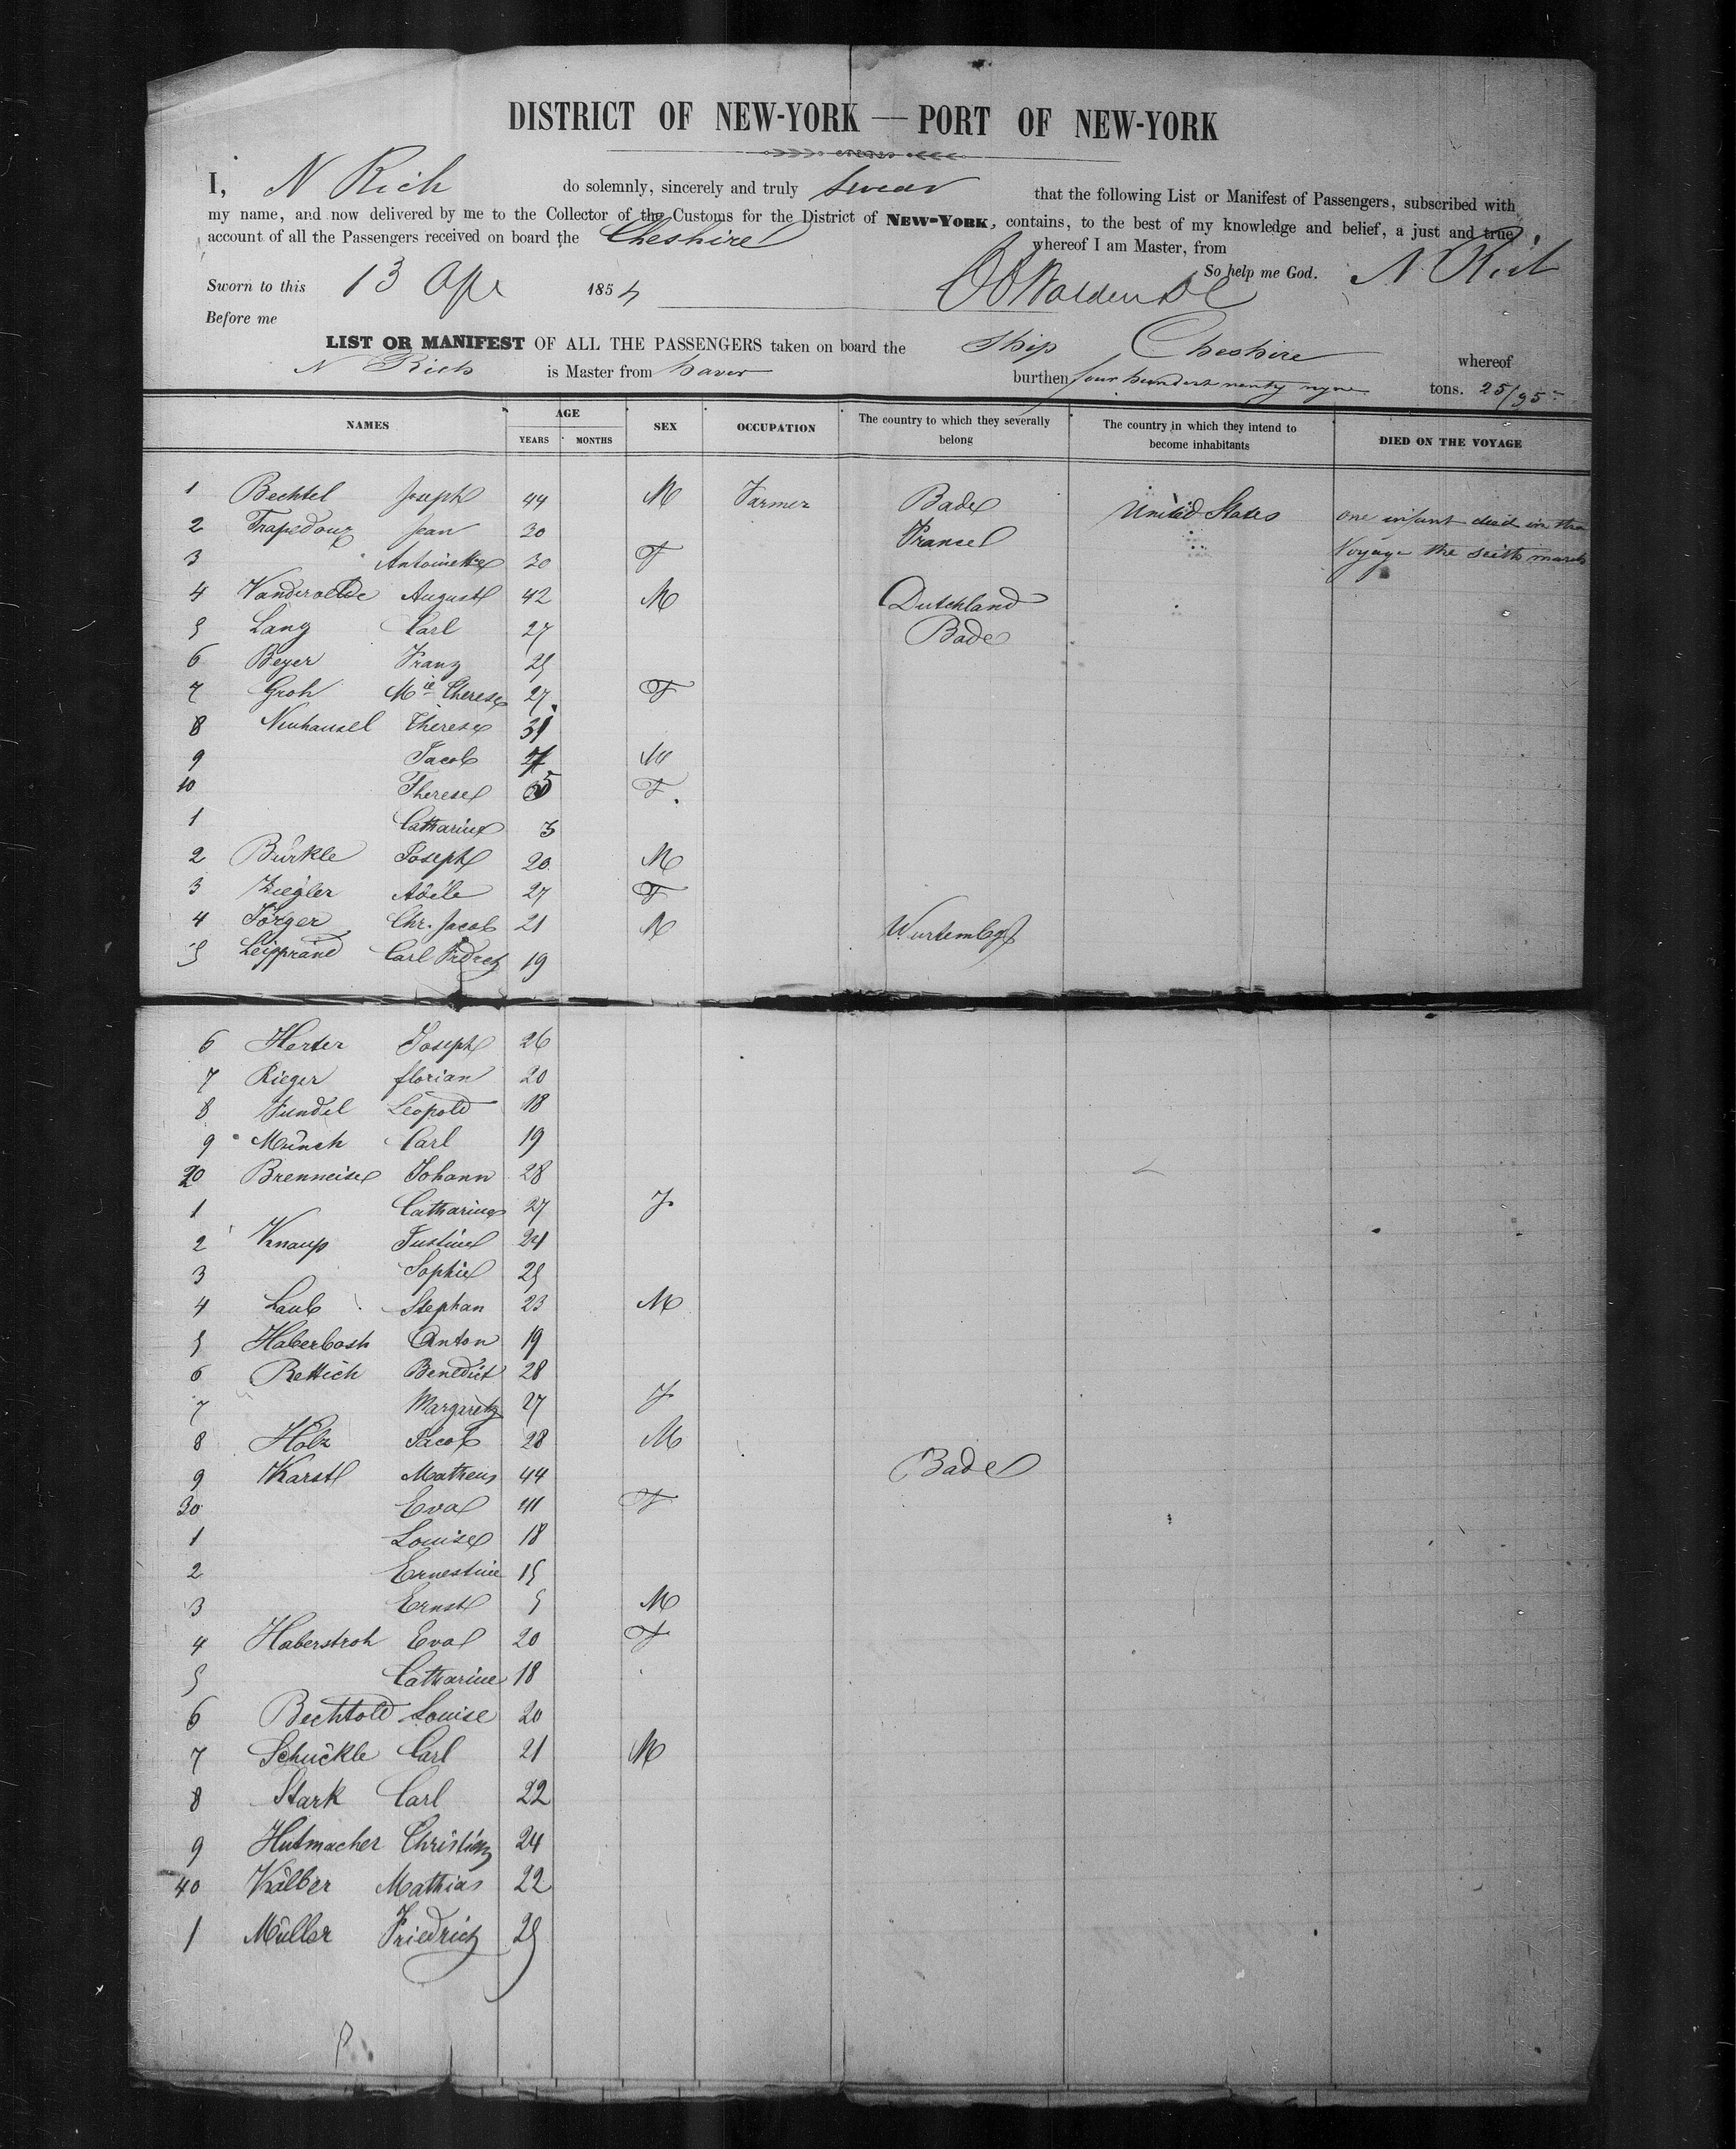 DISTRICT OF NEW-YORK — PORT OF NEW-YORK
I, N Rich do solemnly, sincerely and truly swear that the following List or Manifest of Passengers, subscribed with
my name, and now delivered by me to the Collector of the Customs for the District of NEW-YORK, contains, to the best of my knowledge and belief, a just and true
account of all the Passengers received on board the Cheshire whereof I am Master, from
So help me God. N. Rich
Sworn to this 13 Apr 1854
Before me
LIST OR MANIFEST OF ALL THE PASSENGERS taken on board the Ship Cheshire whereof
N Rich is Master from havre burthen four hundert tons. 25/95
NAMES AGE YEARS MONTHS SEX OCCUPATION The country to which they severally belong The country in which they intend to become inhabitants DIED ON THE VOYAGE
1 Bechtel Joseph 44 M Farmer Bade United States one infant died in the
2 Trapedoux Jean 30 France
3 Antoinette 30 F Voyage the march
4 August 42 M Dutchland
5 Lang Carl 27 Bade
6 Beyer Franz 25
7 Groh Mie Therese 27 F
8 Neuhausel Therese 31
9 Jacob M
10 Therese 5 F
1 Catharine 3
2 Bürkle Joseph 20 M
3 Ziegler Adèle 27 F
4 Jörger Chr. Jacob 21 M Wurtembg
5 Leipprand Carl Fridrch 19
6 Herter Joseph 26
7 Rieger florian 20
8 Fundel Leopold 18
9 Münch Carl 19
20 Brenneise Johann 28
1 Catharine 27 F
2 Knaup Justine 24
3 Sophie 25
4 Laub Stephan 23 M
5 Haberbosh Anton 19
6 Rettich Benedict 28
7 Margareth 27 F
8 Holz Jacob 28 M
9 Karst Matheus 44 Bade
30 Eva 41 F
1 Louise 18
2 Ernestine 15
3 Ernst 5 M
4 Haberstroh Eva 20 F
5 Catharine 18
6 Bechtold Louise 20
7 Schückle Carl 21 M
8 Stark Carl 22
9 Hutmacher Christian 24
40 Kälber Mathias 22
1 Müller Friedrich 25